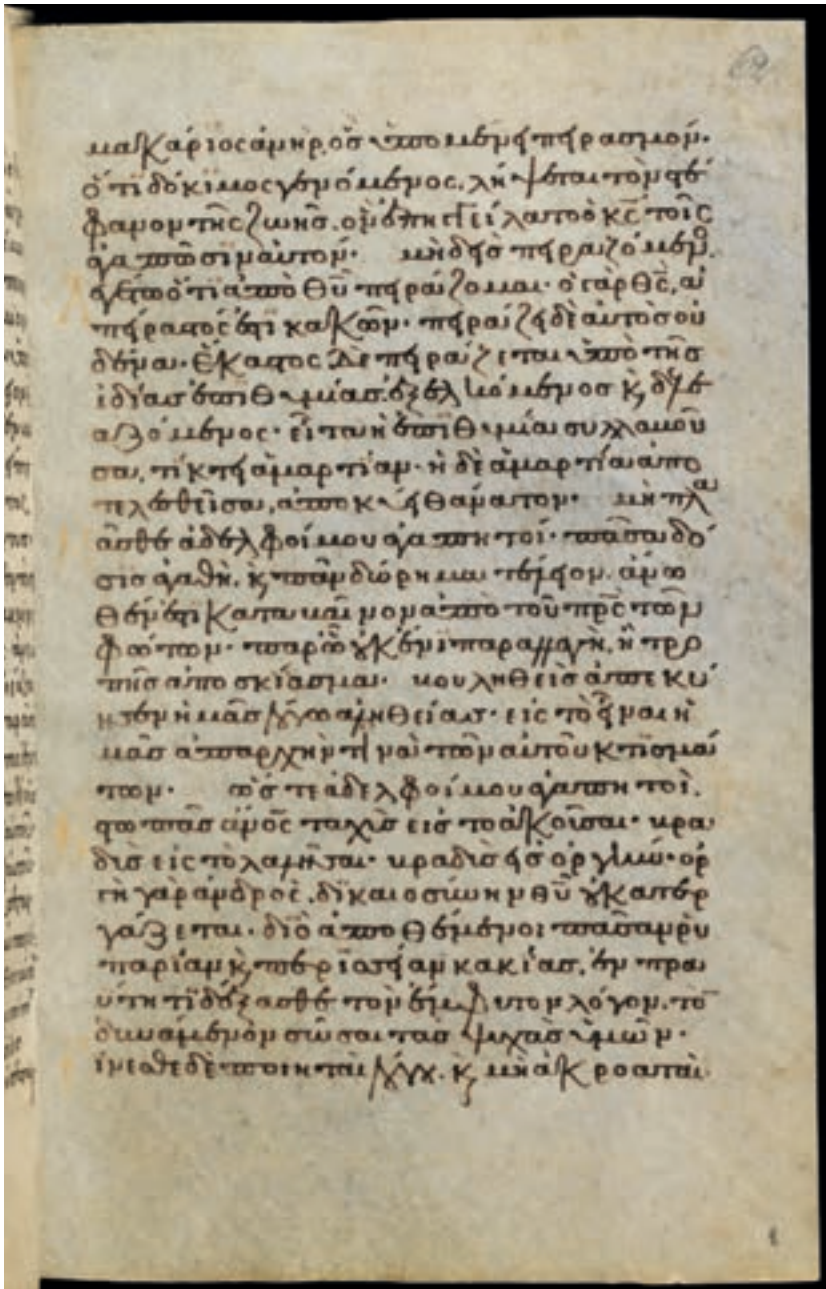 μακάριος ἀνὴρ, ὃς ὑπομένει πειρασμόν·
ὅτι δόκιμος γενόμενος, λήψεται τὸν στέ
φανον τῆς ζωῆς, ὃν ἐπηγγείλατο ὁ κς τοῖς
ἀγαπῶσιν αὐτόν· μηδεὶς πειραζόμενος
λεγέτω ὅτι ἀπὸ θυ πειράζομαι· ὁ γὰρ θς, ἀ
πείραστός ἐστι κακῶν· πειράζει δὲ αὐτὸς οὐ
δένα· ἕκαστος δὲ πειράζεται ὑπὸ τῆς
ἰδίας ἐπιθυμίας ἐξελκόμενος κ, δελε
αζόμενος· εἶτα ἡ ἐπιθυμία συλλαβοῦ
σα, τίκτει ἁμαρτίαν· ἡ δὲ ἁμαρτία ἀπο
τελεσθεῖσα, ἀποκύει θάνατον· μὴ πλα
νᾶσθε ἀδελφοί μου ἀγαπητοί· πᾶσα δό
σις ἀγαθὴ, κ, πᾶν δώρημα τέλειον, ἄνω
θέν ἐστι καταβαῖνον ἀπὸ τοῦ πρς τῶν
φώτων· παρ' ᾧ οὐκ ἔνι παραλλαγὴ, ἢ τρο
πῆς ἀποσκίασμα· βουληθεὶς ἀπεκύ
ησεν ἡμᾶς λόγω ἀληθείας· εἰς τὸ εἶναι ἡ
μᾶς ἀπαρχήν τινα τῶν αὐτοῦ κτισμά
των· ὥστε ἀδελφοί μου ἀγαπητοὶ,
ἔστω πᾶς ἄνος ταχὺς εἰς τὸ ἀκοῦσαι· βρα
δὺς εἰς τὸ λαλῆσαι· βραδὺς εἰς ὀργήν· ὀρ
γὴ γὰρ ἀνδρὸς, δικαιοσύνην θυ οὐ κατερ
γάζεται· διὸ ἀποθέμενοι πᾶσαν ῥυ
παρίαν κ, περισσείαν κακίας, ἐν πρα
ύτητι δέξασθε τὸν ἔμφυτον λόγον, τὸν
δυνάμενον σῶσαι τὰς ψυχὰς ὑμῶν·
γίνεσθε δὲ ποιηταὶ λόγου, κ, μὴ ἀκροαταὶ